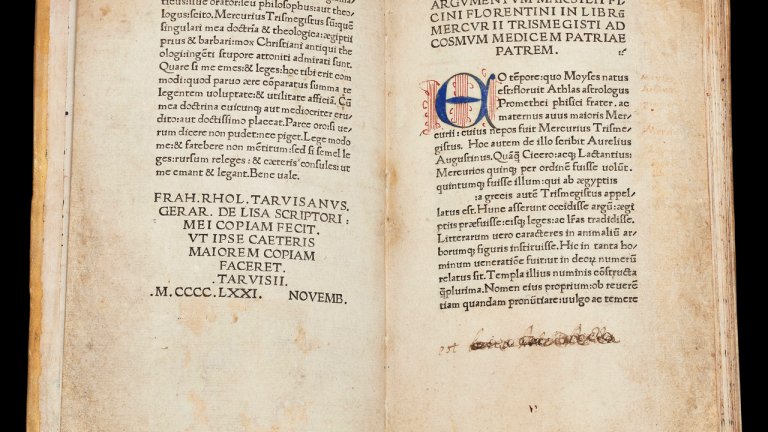 tius: siue oratorie: eu philosophus: aut theo/
logus: scito. Mercurius Trismegistus sum: quē
singulari mea doctrīa & theologica: ægiptii
prius & barbari: mox Christiani antiqui the
ologi: ingēti stupore attoniti admirati sunt.
Quare si me emes: & leges: hoc tibi erit com
modi: quod paruo ære cōparatus summa te
legentem uoluptate: & utilitate afficiā. Cū
mea doctrina cuicūq; aut mediocriter eru/
dito: aut doctissimo placeat. Parce oro: si ue/
rum dicere non pudet: nec piget. Lege modo
me: & fatebere non mētitum: sed si semel le
ges: rursum releges: & cæteris cōsules: ut
me emant & legant. Bene uale.
FRAN. RHOL. TARVISANVS.
GERAR. DE LISA SCRIPTORI:
MEI COPIAM FECIT.
VT IPSE CAETERIS
MAIOREM COPIAM
FACERET.
.TARVISII.
.M.CCCC.LXXI. NOVEMB.
ARGVMENTVM MARSILII FI
CINI FLORENTINI IN LIBRŪ
MERCVRII TRISMEGISTI AD
COSMVM MEDICEM PATRIAE
PATREM.
EO tēpore: quo Moyses natus
est: floruit Athlas astrologus
Promethei phisici frater. ac
maternus auus maioris Mer/
curii: cuius nepos fuit Mercurius Trisme/
gistus. Hoc autem de illo scribit Aurelius
Augustinus. Quāq̄ Cicero: acq; Lactantius:
Mercurios quinq; per ordinē fuisse uolūt.
quintumq; fuisse illum: qui ab ægyptiis
a grecis autē Trismegistus appel/
latus est. Hunc asserunt occidisse argū: ægi/
ptiis præfuisse: eisq; leges: ac lr̄as tradidisse.
Litterarum uero caracteres in animaliū ar/
borumq; figuris instituisse. Hic in tanta ho/
minum ueneratiōe fuit: ut in deoꝝ numerū
relatus sit. Templa illius numinis cōstructa
q̄plurima. Nomen eius proprium: ob reuerē
tiam quandam pronūtiare: uulgo ac temere
est